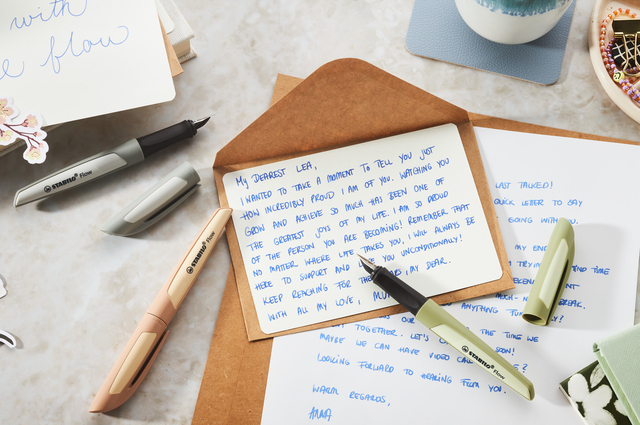 with
flow
STABILO flow
STABILO flow
MY DEAREST LEA,
I WANTED TO TAKE A MOMENT TO TELL YOU JUST
HOW INCREDIBLY PROUD I AM OF YOU. WATCHING YOU
GROW AND ACHIEVE SO MUCH HAS BEEN ONE OF
THE GREATEST JOYS OF MY LIFE. I AM SO PROUD
OF THE PERSON YOU ARE BECOMING! REMEMBER THAT
NO MATTER WHERE LIFE TAKES YOU, I WILL ALWAYS BE
HERE TO SUPPORT AND YOU UNCONDITIONALLY!
KEEP REACHING FOR THE MY DEAR.
WITH ALL MY LOVE,
LAST TALKED!
QUICK LETTER TO SAY
GOING WITH YOU.
MY
TIME
BREAK.
ANYTHING
TOGETHER. LET'S THE TIME WE
MAYBE WE CAN HAVE VIDEO SOON!
LOOKING FORWARD TO HEARING FROM YOU.
WARM REGARDS,
ANNA
STABILO flow